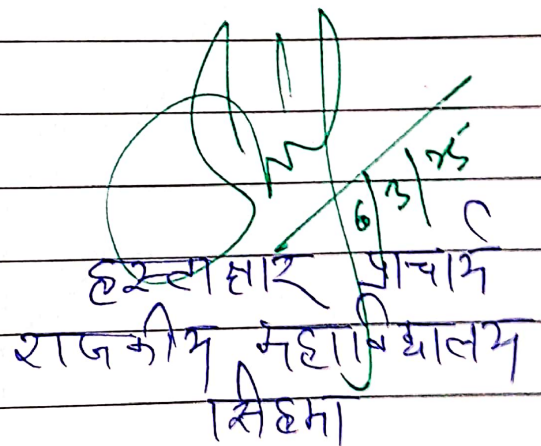 6/3/25
हस्ताक्षार प्राचार्य
राजकीय महाविद्यालय
सिहमा